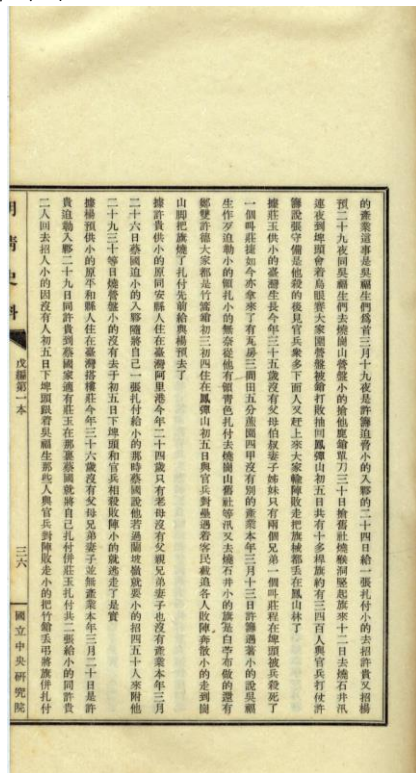 的產業這事是吳福生們爲首三月十九夜是許籌迫脅小的入夥的二十四日給一張扎付小的去招許貴又招楊
預二十九夜同吳福生們去燒崗山營盤小的搶他鹿鎗單刀三十日搶舊社燒猴洞竪起旗來十二日去燒石井汛
連夜到埤頭會着烏眼賽大家圍營盤被鎗打敗抽回鳳彈山初五日共有十多桿旗約有三四百人與官兵打仗許
籌說張守備是他殺的後見官兵衆多下面人又赶上來大家輸陣敗走把旗械都丟在鳳山林了
據莊玉供小的是臺灣生長今年三十五歲沒有父母伯叔妻子姊妹只有兩個兄弟一個叫莊程在埤頭被兵殺死了
一個叫莊接如今亦拿來了有瓦房三間田五分蔗園四甲沒有別的產業本年三月十三日許籌遇著小的說吳福
生作歹迫勒小的領扎小的無奈從他有領青色扎付去燒崗山舊社等汛又去燒石井小的旗是白苧布做的還有
鄭雙許德大家都是竹篙鎗初三初四住在鳳彈山初五日與官兵對壘遇着客民截追各人敗陣奔散小的走到崗
山脚把旗燒了扎付先前給與楊預去了
據許貴供小的原同安縣人住在臺灣阿里港今年二十四歲只有老母沒有父親兄弟妻子也沒有產業本年三月
二十六日蔡國迫小的入夥隨將自己一張扎付給小的那時蔡國說他若過蘭坡嶺就要小的招四五十人來附他
二十九三十等日燒營盤小的沒有去于初五日下埤頭和官兵相殺敗陣小的就逃走了是實
據楊預供小的原平和縣人住在臺灣搭樓莊今年三十六歲沒有父母兄弟妻子並無產業本年三月二十日是許
貴迫勒入夥二十九日同許貴到蔡國家適有莊玉在那裏蔡國就將自己扎付併莊玉扎付共二張給小的同許貴
二人回去招人小的因沒有人初五日下埤頭跟着吳福生那些人與官兵對陣敗走小的把竹鎗丟弔將旗併扎付
明清史料
戊編第一本
三六
國立中央研究院